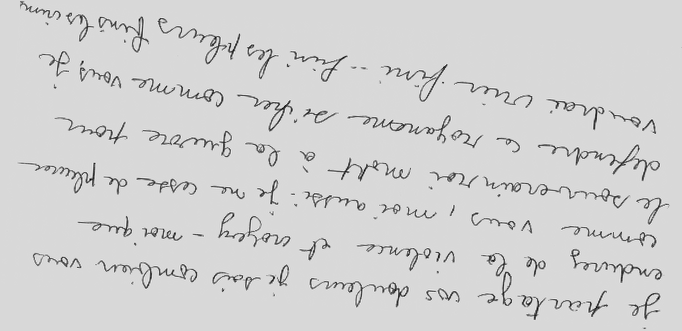 je partage vos douleurs je sais combien vous
endurez de la violence et croyez - moi que
comme vous, moi aussi : je ne cesse de pleurer
le souverain roi mort à la guerre pour
défendre ce royaume si cher comme vous, je
voudrai crier fini -- fini les pleurs finis les crimes